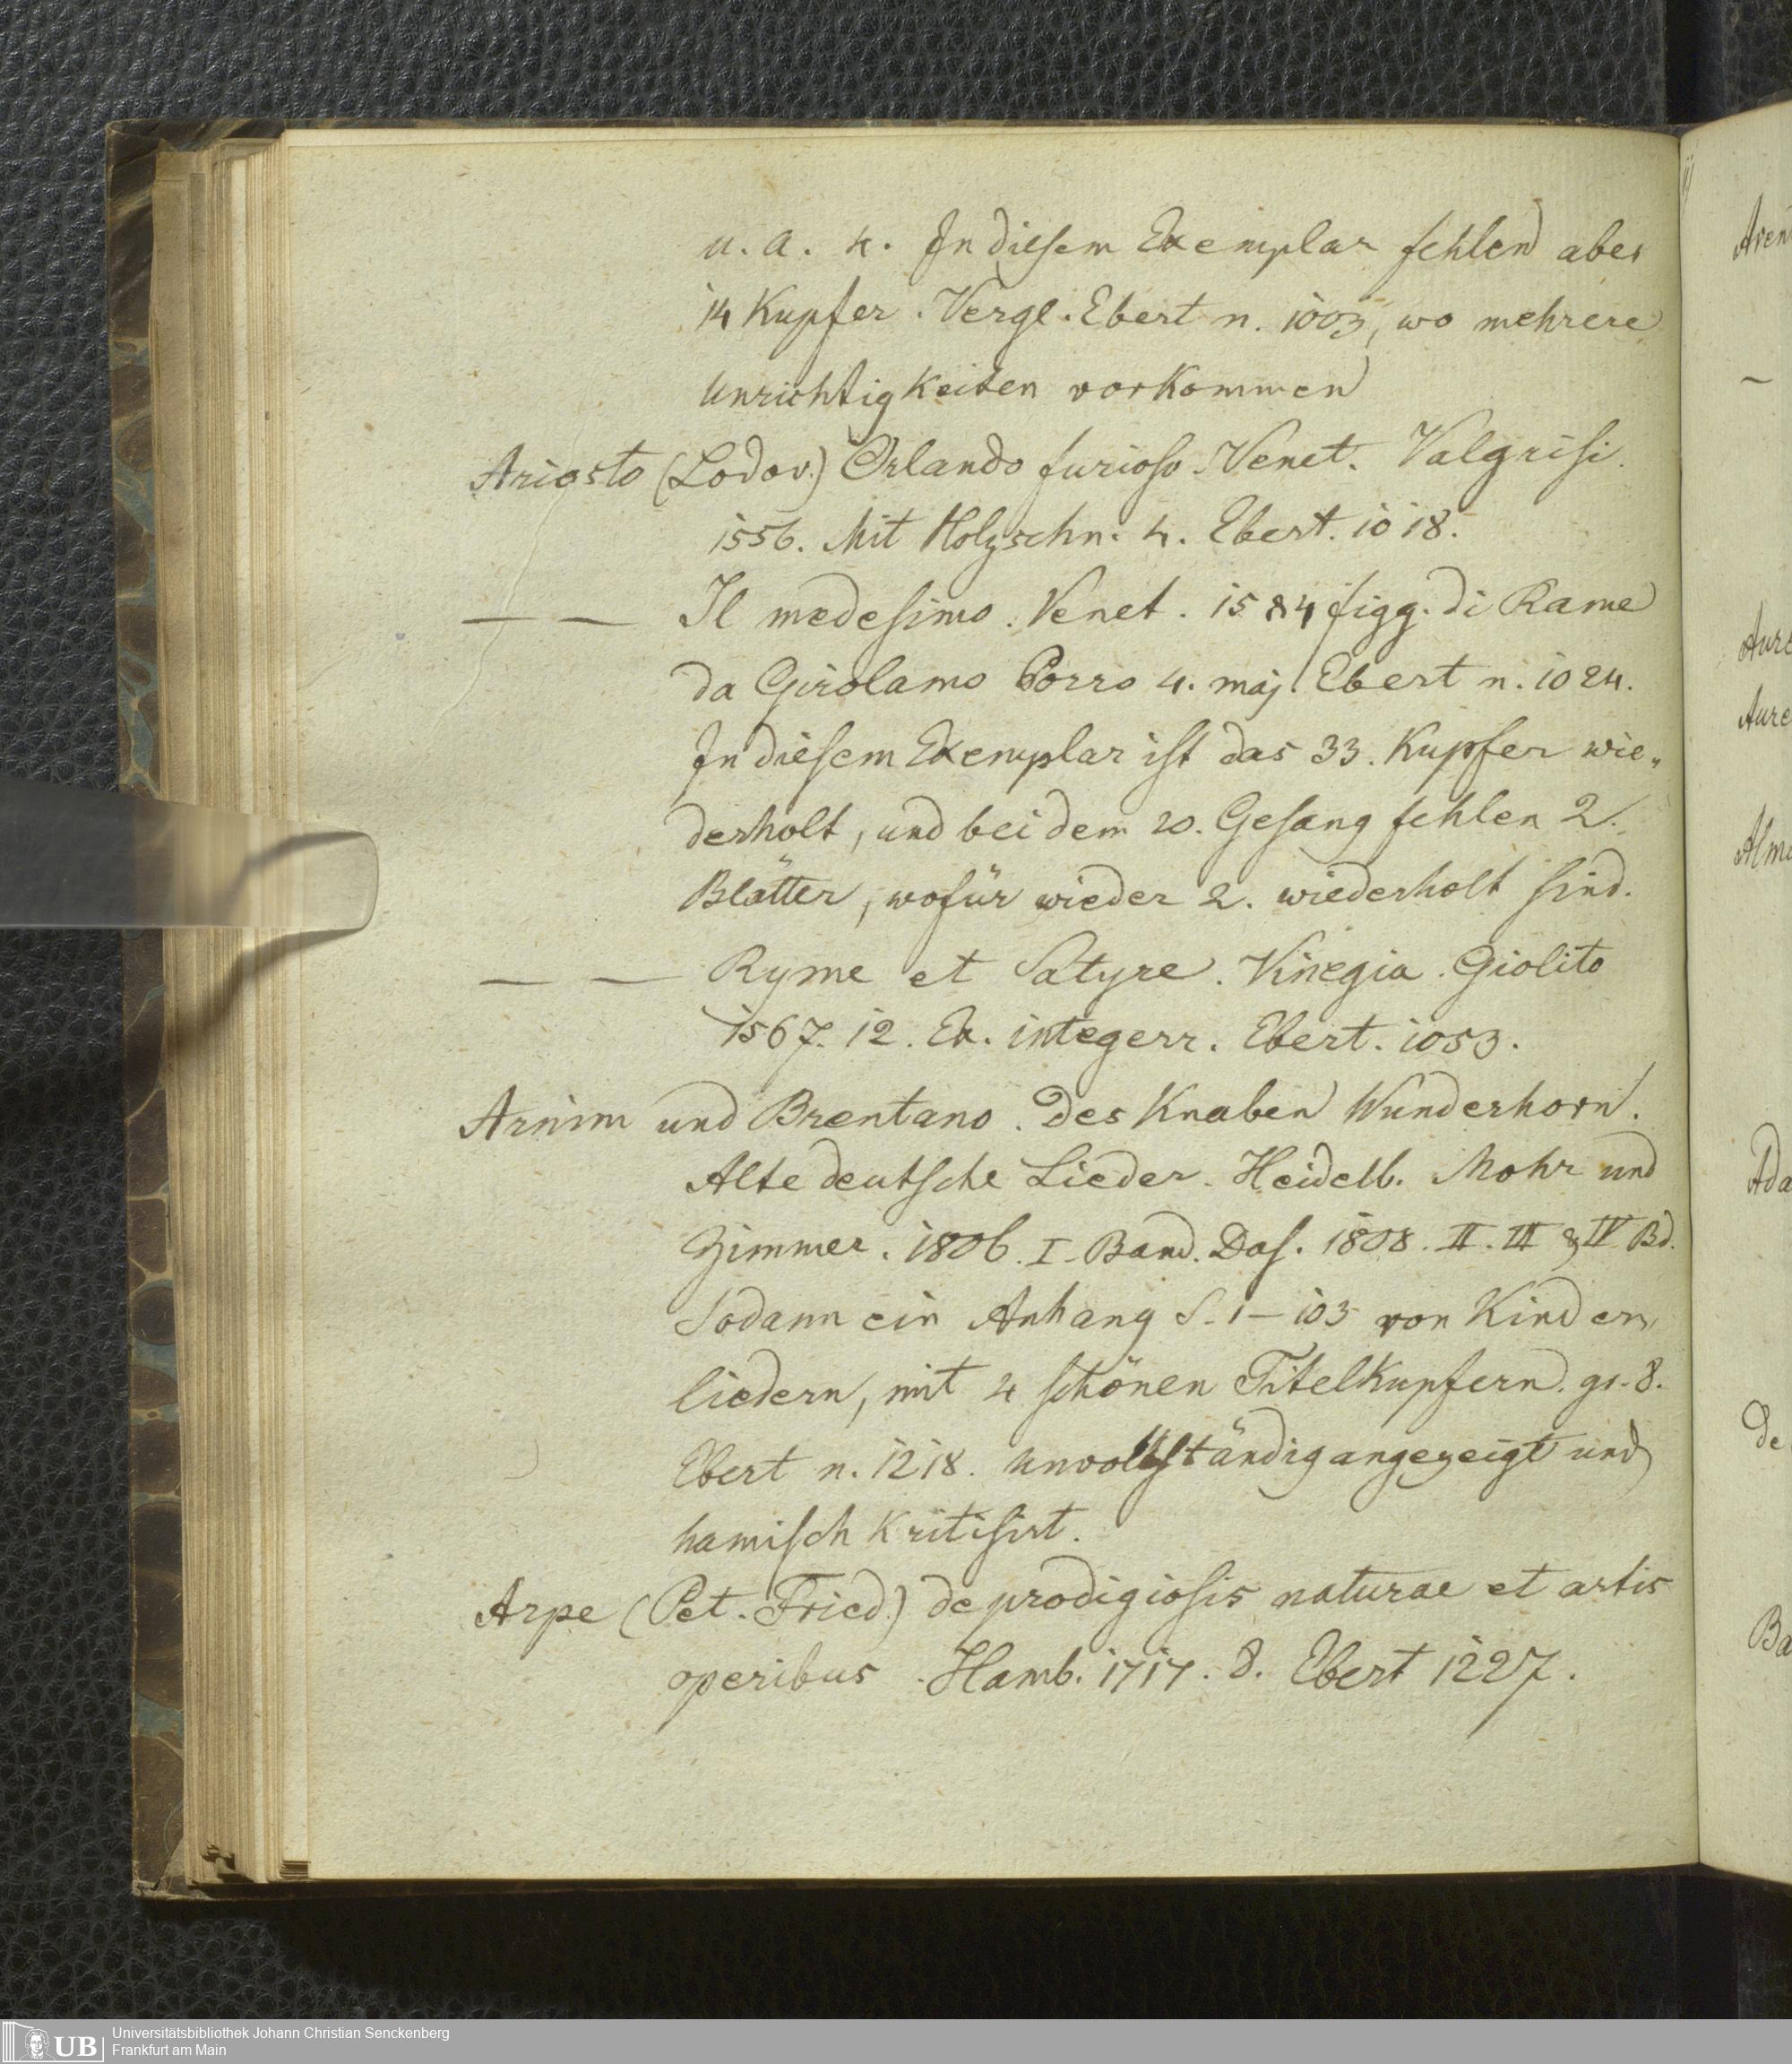 u. a. 4. In diesem Exemplar fehlen aber
14 Kupfer. Vergl. Ebert n. 1003, wo mehrere
Unrichtigkeiten vorkommen
Ariosto (Lodov.) Orlando furioso. Venet. Valgrisi.
1556. Mit Holzschn. 4. Ebert. 1018.
— — Il medesimo. Venet. 1584 figg. di Rame
da Girolamo Porro 4. maj. Ebert n. 1024.
In diesem Exemplar ist das 33. Kupfer wie„
derholt, und bei dem 20. Gesang fehlen 2.
Blätter, wofür wieder 2. wiederholt sind.
— — Ryme et Satyre. Vinegia. Giolito
1567. 12. Ex. integerr. Ebert. 1053.
Arnim und Brentano. Des Knaben Wunderhorn.
Alte deutsche Lieder. Heidelb. Mohr und
Zimmer. 1806. I. Band. Das. 1808. II. III & IV Bd.
Sodann ein Anhang S. 1–103 von Kinder„
liedern, mit 4 schönen Titelkupfern. gr. 8.
Ebert n. 1218. unvollständig angezeigt und
hamisch kritisirt.
Arpe (Pet. Fried.) de prodigiosis naturae et artis
operibus. Hamb. 1717. 8. Ebert 1227.
Aren
Aure
Aure
Alma
Ada
De
Ba
UB
Universitätsbibliothek Johann Christian Senckenberg
Frankfurt am Main